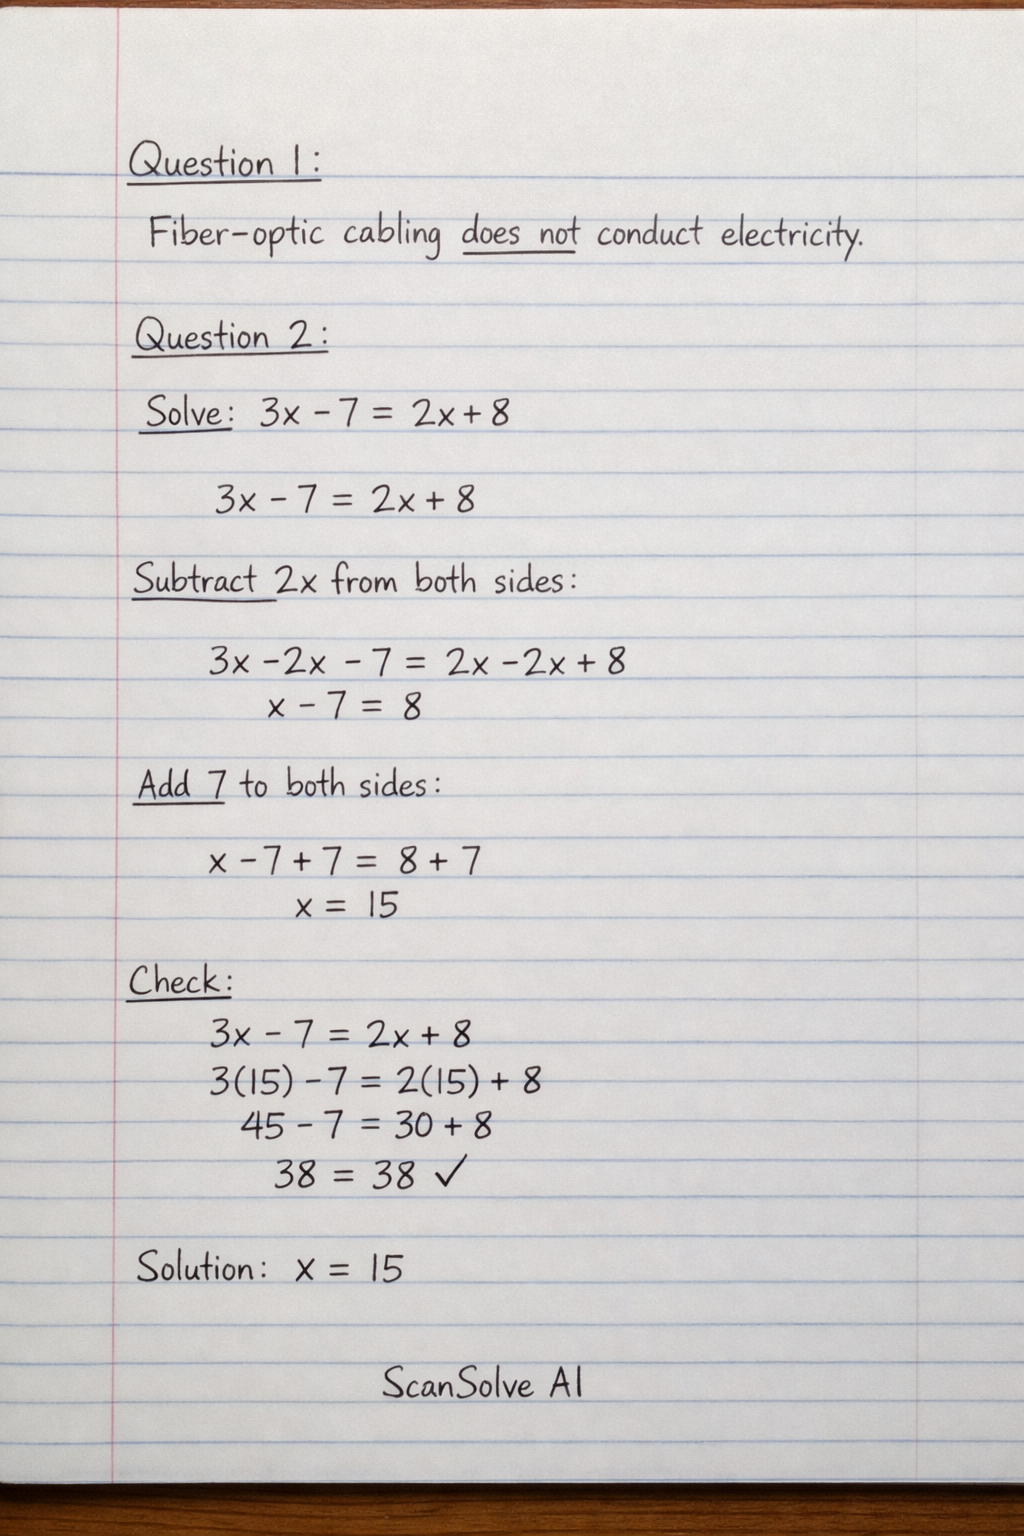 Question 1:
Fiber-optic cabling does not conduct electricity.
Question 2:
Solve: 3x - 7 = 2x + 8
3x - 7 = 2x + 8
Subtract 2x from both sides:
3x - 2x - 7 = 2x - 2x + 8
x - 7 = 8
Add 7 to both sides:
x - 7 + 7 = 8 + 7
x = 15
Check:
3x - 7 = 2x + 8
3(15) - 7 = 2(15) + 8
45 - 7 = 30 + 8
38 = 38 ✓
Solution: x = 15
ScanSolve AI